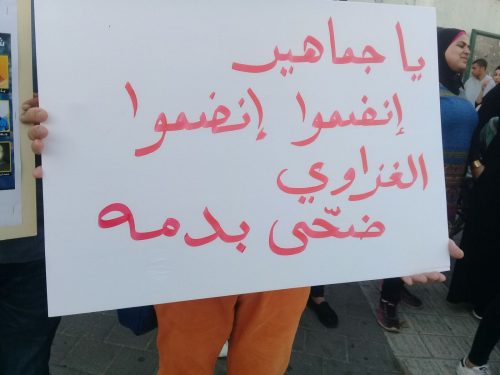 يا جماهير
إنضموا إنضموا
الغزاوي
ضحّى بدمه